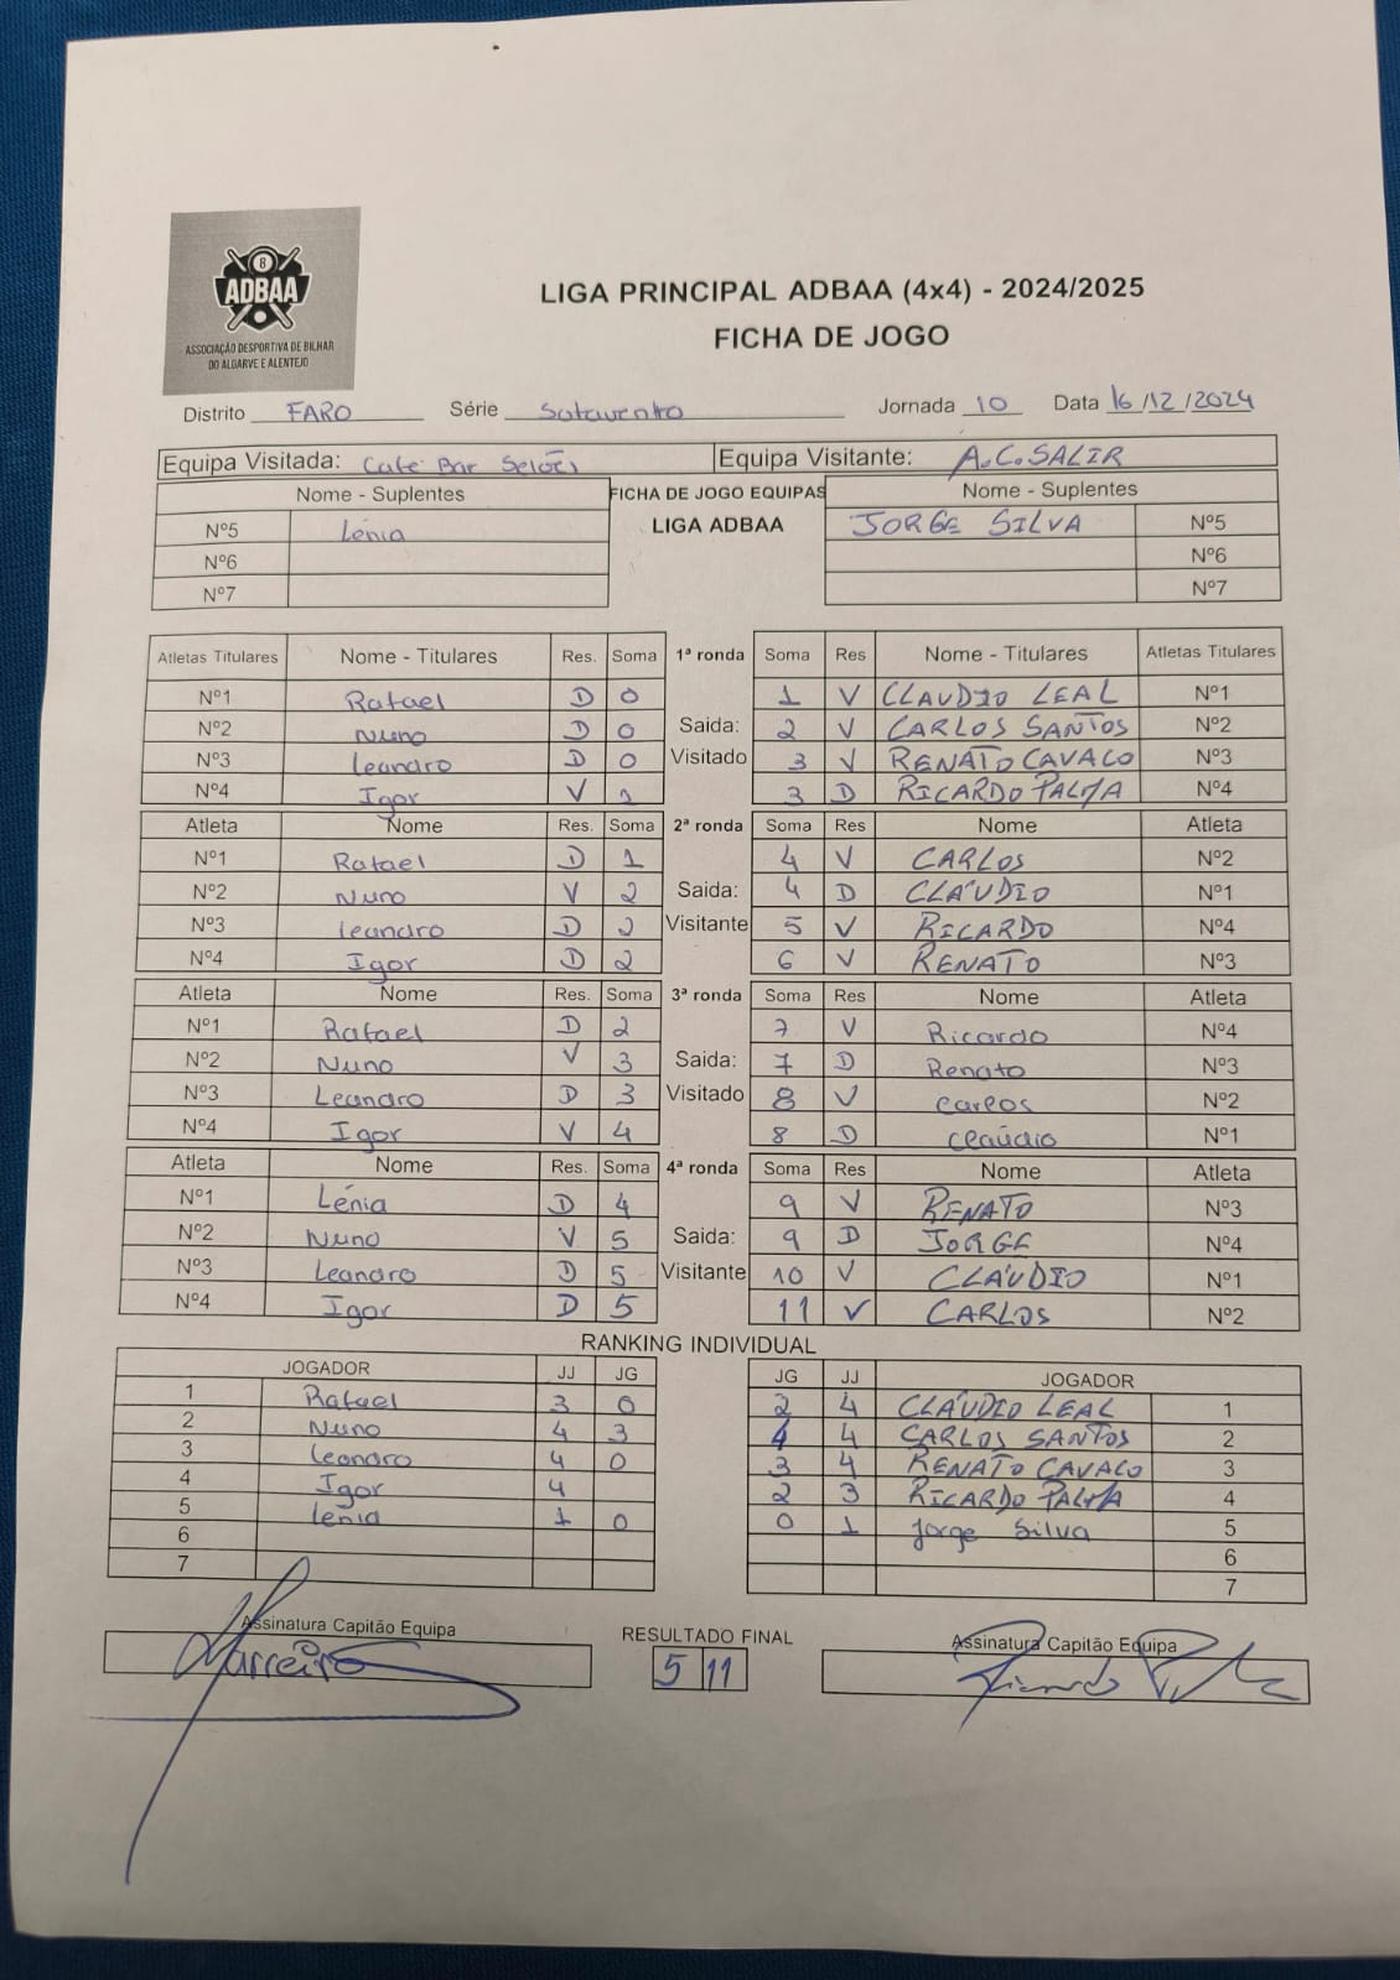 8
ADBAA
ASSOCIAÇÃO DESPORTIVA DE BILHAR
DO ALGARVE E ALENTEJO
LIGA PRINCIPAL ADBAA (4x4) - 2024/2025
FICHA DE JOGO
Distrito FARO Série Sotavento Jornada 10 Data 16/12/2024
Equipa Visitada: Café Bar Selões Equipa Visitante: A.C.SALIR
Nome - Suplentes FICHA DE JOGO EQUIPAS Nome - Suplentes
Nº5 Lénia LIGA ADBAA JORGE SILVA Nº5
Nº6 Nº6
Nº7 Nº7
Atletas Titulares Nome - Titulares Res. Soma 1ª ronda Soma Res Nome - Titulares Atletas Titulares
Nº1 Rafael D 0 1 V CLAUDIO LEAL Nº1
Nº2 Nuno D 0 Saida: 2 V CARLOS SANTOS Nº2
Nº3 Leandro D 0 Visitado 3 V RENATO CAVACO Nº3
Nº4 Igor V 1 3 D RICARDO PALMA Nº4
Atleta Nome Res. Soma 2ª ronda Soma Res Nome Atleta
Nº1 Rafael D 1 4 V CARLOS Nº2
Nº2 Nuno V 2 Saida: 4 D CLÁUDIO Nº1
Nº3 Leandro D 2 Visitante 5 V RICARDO Nº4
Nº4 Igor D 2 6 V RENATO Nº3
Atleta Nome Res. Soma 3ª ronda Soma Res Nome Atleta
Nº1 Rafael D 2 7 V Ricardo Nº4
Nº2 Nuno V 3 Saida: 7 D Renato Nº3
Nº3 Leandro D 3 Visitado 8 V Carlos Nº2
Nº4 Igor V 4 8 D Claúdio Nº1
Atleta Nome Res. Soma 4ª ronda Soma Res Nome Atleta
Nº1 Lénia D 4 9 V RENATO Nº3
Nº2 Nuno V 5 Saida: 9 D JORGE Nº4
Nº3 Leandro D 5 Visitante 10 V CLÁUDIO Nº1
Nº4 Igor D 5 11 V CARLOS Nº2
RANKING INDIVIDUAL
JOGADOR JJ JG JG JJ JOGADOR
1 Rafael 3 0 2 4 CLÁUDIO LEAL 1
2 Nuno 4 3 4 4 CARLOS SANTOS 2
3 Leandro 4 0 3 4 RENATO CAVACO 3
4 Igor 4 2 3 RICARDO PALMA 4
5 Lénia 1 0 0 1 Jorge Silva 5
6 6
7 7
Assinatura Capitão Equipa RESULTADO FINAL Assinatura Capitão Equipa
5 11 Ricardo